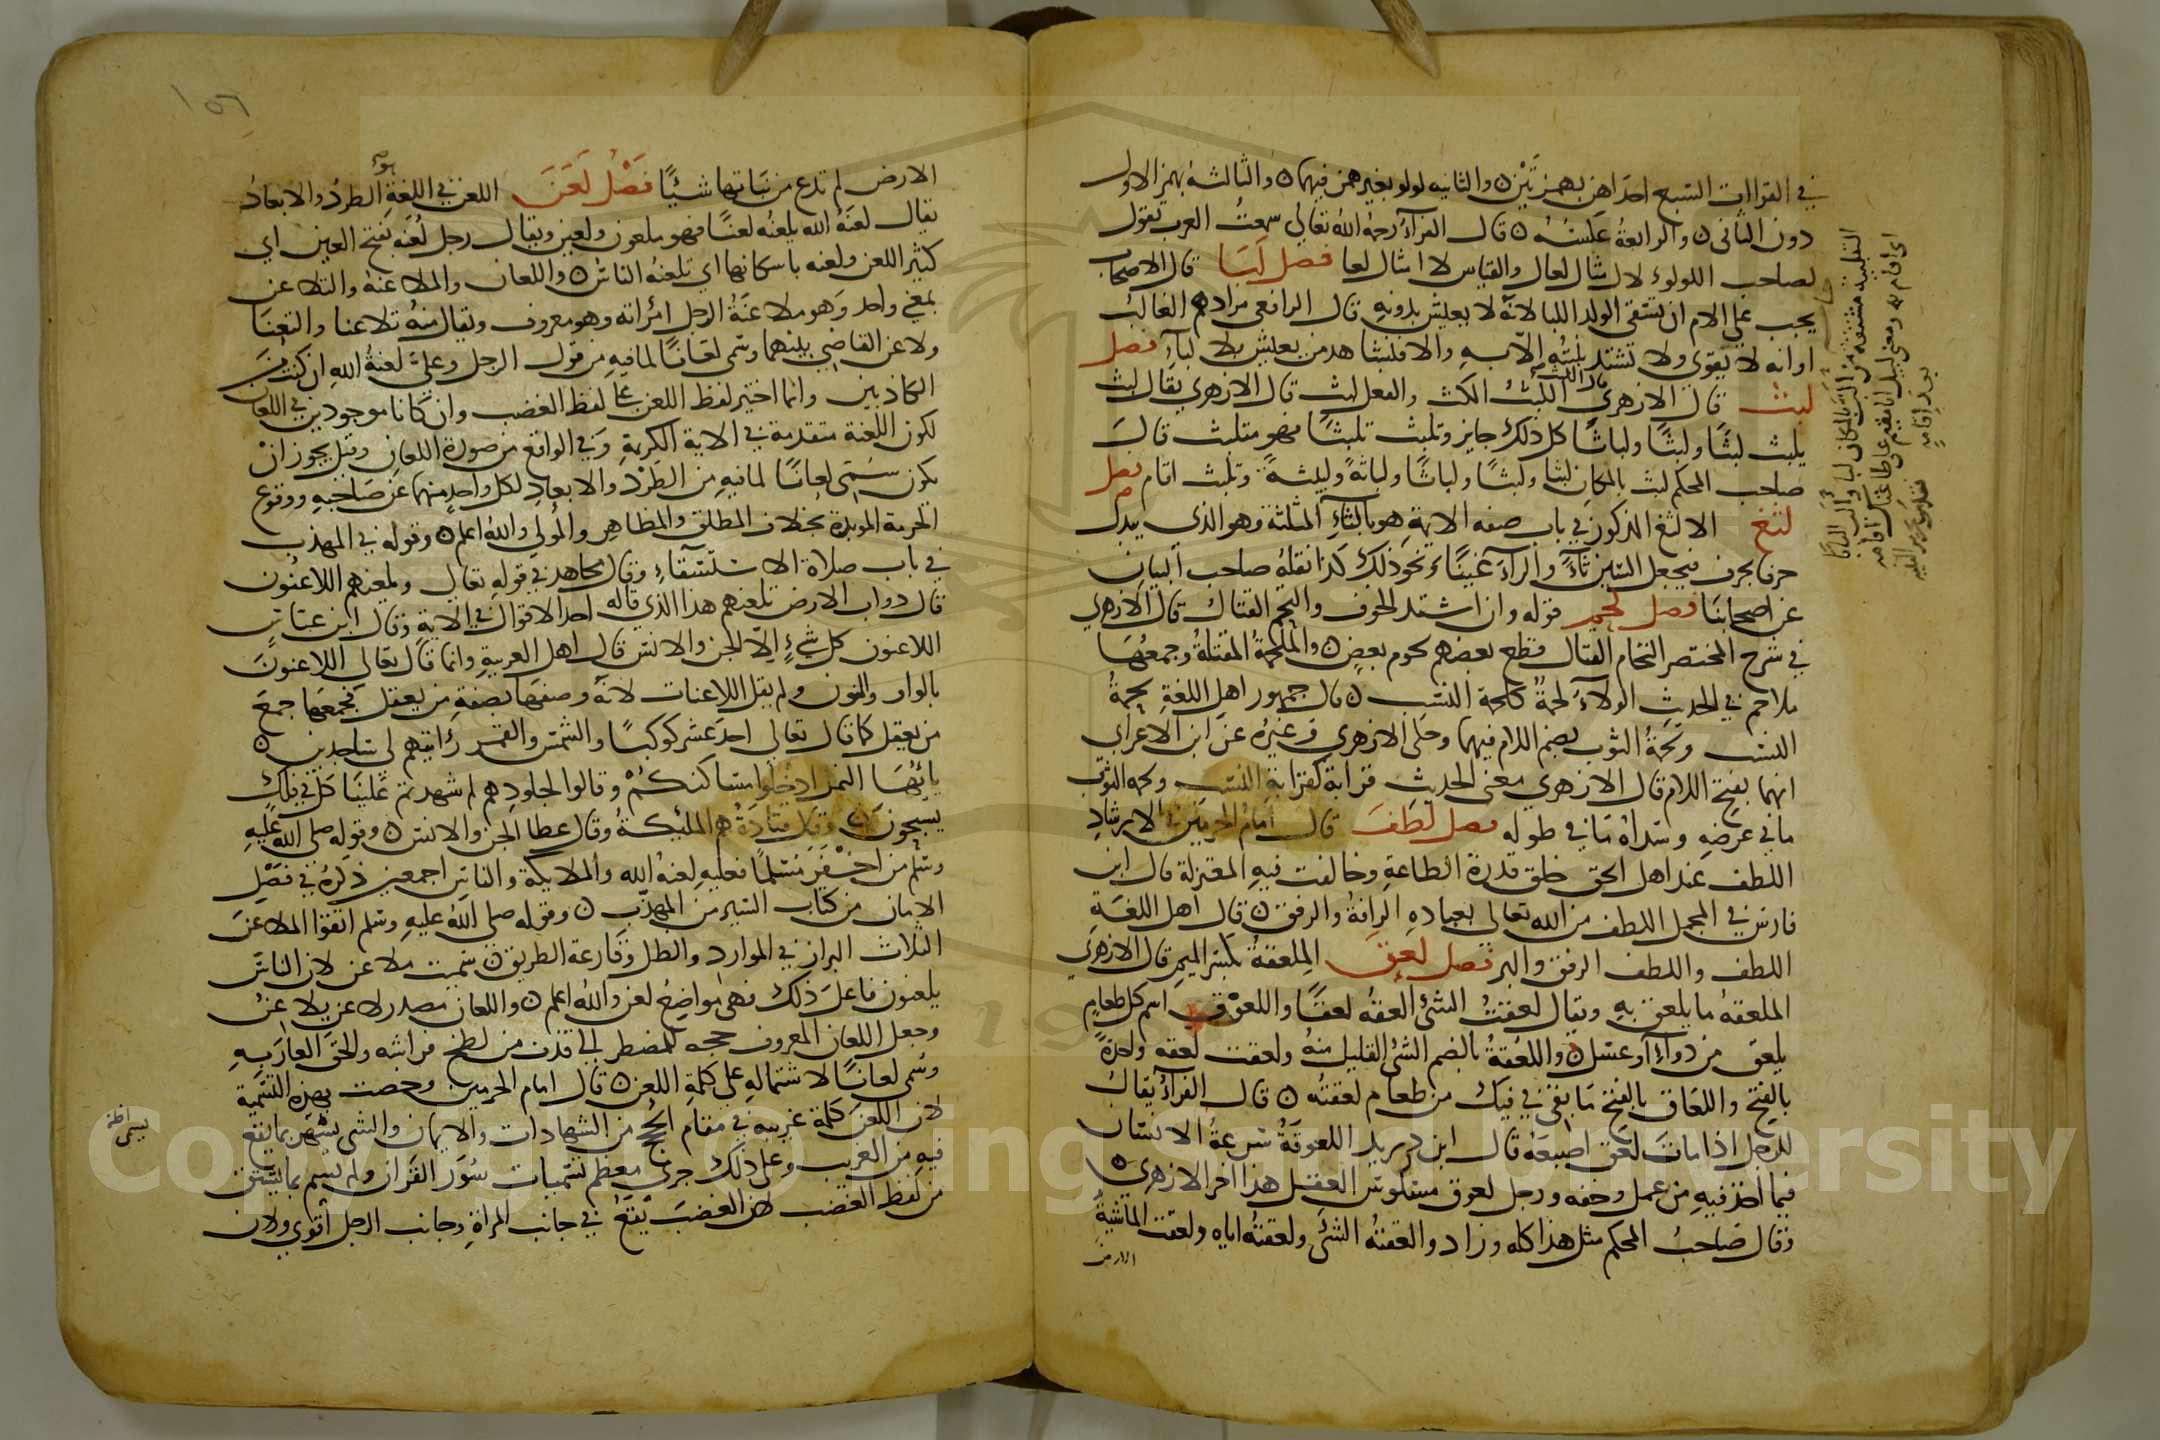 في القراات السبع احداهن بهمزتين ٥ والثانيه لولو بغير همز فيهما ٥ والثالثة بهمز الاول
دون الثاني ٥ والرابعة عكسه ٥ قال الفراء رحمه الله تعالى سمعت العرب تقول
لصاحب اللولوء لال مثال لعال والقياس لاا مثال لعا فصل لبا قال الاصحاب
يجب على الام ان تسقي الولد اللبا لانه لا يعيش بدونه قال الرافعي مرادهم الغالب
او انه لا يقوى ولا تشتد بنيته الا به والا فنشاهد من يعيش بلا لباء فصل
لبث قال الازهري اللبث المكث والفعل لبث قال الازهري يقال لبث
يلبث لبثا ولبثا ولباثا كل ذلك جايز وتلبث تلبثا فهو متلبث قال
صاحب المحكم لبث بالمكان لبثا ولبثا ولباثا ولباثة ولبيثة وتلبث اقام فصل
لثغ الالثغ المذكور في باب صفه الايمة هو بالثاء المثلثة وهو الذي يبدل
حرفا بحرف فيجعل السين ثاء والراء غينا ونحو ذلك كذا نقله صاحب البيان
عن اصحابنا فصل لحم قوله وان اشتد الخوف والتحم القتال قال الازهري
في شرح المختصر التحام القتال قطع بعضهم لحوم بعض ٥ والملحمة المقتلة وجمعها
ملاحم في الحديث الولاء لحمة كلحمة النسب ٥ قال جمهور اهل اللغة لحمة
النسب ولحمة الثوب بضم اللام فيهما وحكى الازهري وغيره عن ابن الاعرابي
انهما بفتح اللام قال الازهري معنى الحديث قرابة كقرابة النسب ولحمه الثوب
ما في عرضه وسداه ما في طوله فصل لطف قال امام الحرمين في الارشاد
اللطف عند اهل الحق خلق قدرة الطاعة وخالفت فيه المعتزلة قال ابن
فارس في المجمل اللطف من الله تعالى بعباده الرافة والرفق ٥ قال اهل اللغة
اللطف واللطف الرفق والبر فصل لعق الملعقة بكسر الميم قال الازهري
الملعقه ما يلعق به ويقال لعقت الشئ العقه لعقا واللعوق اسم كل طعام
يلعق من دواء او عسل ٥ واللعقة بالضم الشئ القليل منه ولعقت لعقه واحدة
بالفتح واللعاق بالفتح ما بقي في فيك من طعام لعقته ٥ قال الفراء يقال
للرجل اذا مات لعق اصبعه قال ابن دريد اللعوقة سرعة الانسان
فيما اخذ فيه من عمل وخفه ورجل لعوق مسلوس العقل هذا اخر الازهري ٥
وقال صاحب المحكم مثل هذا كله وزاد والعقته الشئ ولعقته اياه ولعقت الماشية
الارض
١٥٦
الارض لم تدع من نباتها شيئا فصل لعن اللعن في اللغة هو الطرد والابعاد
يقال لعنه الله يلعنه لعنا فهو ملعون ولعين ويقال رجل لعنه بفتح العين اي
كثير اللعن ولعنه باسكانها اي تلعنه الناس ٥ واللعان والملاعنة والتلاعن
بمعنى واحد وهو ملاعنة الرجل امراته وهو معروف ويقال منه تلاعنا والتعنا
ولاعن القاضي بينهما وسمي لعانا لما فيه من قول الرجل وعلي لعنة الله ان كنت من
الكاذبين وانما اختير لفظ اللعن على لفظ الغضب وان كانا موجودين في اللعان
لكون اللعنة متقدمة في الاية الكريمة وفي الواقع من صورة اللعان وقيل يجوز ان
يكون سمي لعانا لما فيه من الطرد والابعاد لكل واحد منهما عن صاحبه ووقوع
الحرمة الموبدة بخلاف المطلق والمظاهر والمولي والله اعلم ٥ وقوله في المهذب
في باب صلاة الاستسقاء وقال مجاهد في قوله تعالى ويلعنهم اللاعنون
قال دواب الارض تلعنهم هذا الذي قاله احد الاقوال في الاية وقال ابن عباس
اللاعنون كل شيء الا الجن والانس قال اهل العربية وانما قال تعالى اللاعنون
بالواو والنون ولم يقل اللاعنات لانه وصفها بصفة من يعقل فجمعها جمع
من يعقل كما قال تعالى احد عشر كوكبا والشمس والقمر رايتهم لي ساجدين ٥
يا ايها النمل ادخلوا مساكنكم وقالوا لجلودهم لم شهدتم علينا كل في فلك
يسبحون وقال قتادة هم المليكة وقال عطا الجن والانس ٥ وقوله صلى الله عليه
وسلم من اخفر مسلما فعليه لعنة الله والملايكة والناس اجمعين ذكره في فصل
الامان من كتاب السير من المهذب ٥ وقوله صلى الله عليه وسلم اتقوا الملاعن
الثلاث البراز في الموارد والظل وقارعة الطريق ٥ سميت ملاعن لان الناس
يلعنون فاعل ذلك فهي مواضع لعن والله اعلم ٥ واللعان مصدر لاعن يلاعن
وجعل اللعان المعروف حجه للمضطر الى قذف من لطخ فراشه والحق العار به
وسمي لعانا لاشتماله على كلمة اللعن ٥ قال امام الحرمين وخصت بهذه التسمية
لان اللعن كلمة غريبه في مقام الحجج من الشهادات والايمان والشي يشهر بما يقع
فيه من الغريب وعلى ذلك جرى معظم تسميات سور القران ولم يسم بما يشتق
من لفظ الغضب لان الغضب يقع في جانب المراة وجانب الرجل اقوى ولان
Copyright © King Saud University